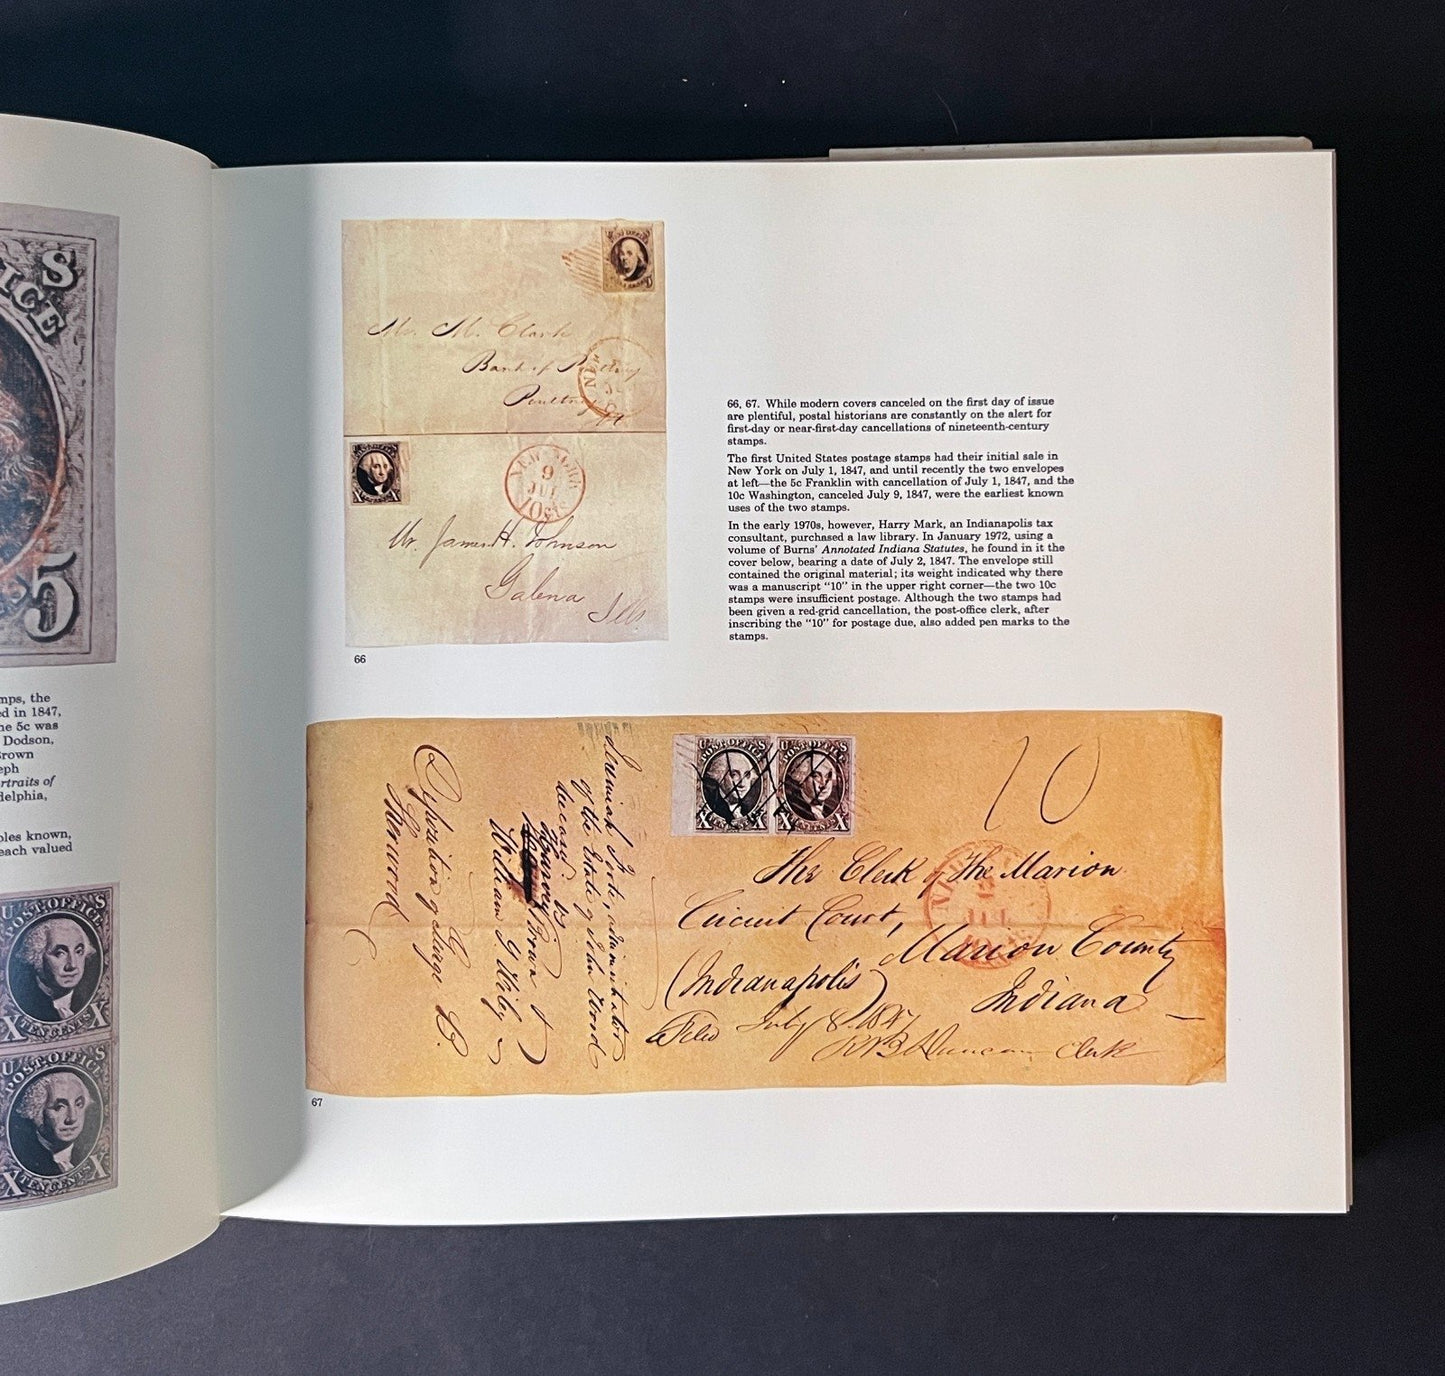 S
ICE
5
mps, the
ed in 1847,
he 5c was
Dodson,
Brown
eph
rtraits of
delphia,
ples known,
each valued
U S
POST OFFICE
X TEN CENTS X
U S
POST OFFICE
X TEN CENTS X
Mr. M. Clark
Bank of Poultney
Poultney
NEW YORK
9
JUL
10cts
X X
Mr. James H. Johnson
Galena
Ills
66
66, 67. While modern covers canceled on the first day of issue
are plentiful, postal historians are constantly on the alert for
first-day or near-first-day cancellations of nineteenth-century
stamps.
The first United States postage stamps had their initial sale in
New York on July 1, 1847, and until recently the two envelopes
at left—the 5c Franklin with cancellation of July 1, 1847, and the
10c Washington, canceled July 9, 1847, were the earliest known
uses of the two stamps.
In the early 1970s, however, Harry Mark, an Indianapolis tax
consultant, purchased a law library. In January 1972, using a
volume of Burns' Annotated Indiana Statutes, he found in it the
cover below, bearing a date of July 2, 1847. The envelope still
contained the original material; its weight indicated why there
was a manuscript "10" in the upper right corner—the two 10c
stamps were insufficient postage. Although the two stamps had
been given a red-grid cancellation, the post-office clerk, after
inscribing the "10" for postage due, also added pen marks to the
stamps.
administrator
of the Estate of John Wood
deceased vs
Harvey Brown &
William J Wiley
Deposition of George C.
U S
POST OFFICE
X TEN CENTS X
U S
POST OFFICE
X TEN CENTS X
10
The Clerk of The Marion
Circuit Court,
Marion County
(Indianapolis)
Indiana
Filed July 8. 1847
Duncan Clerk
JUL
67